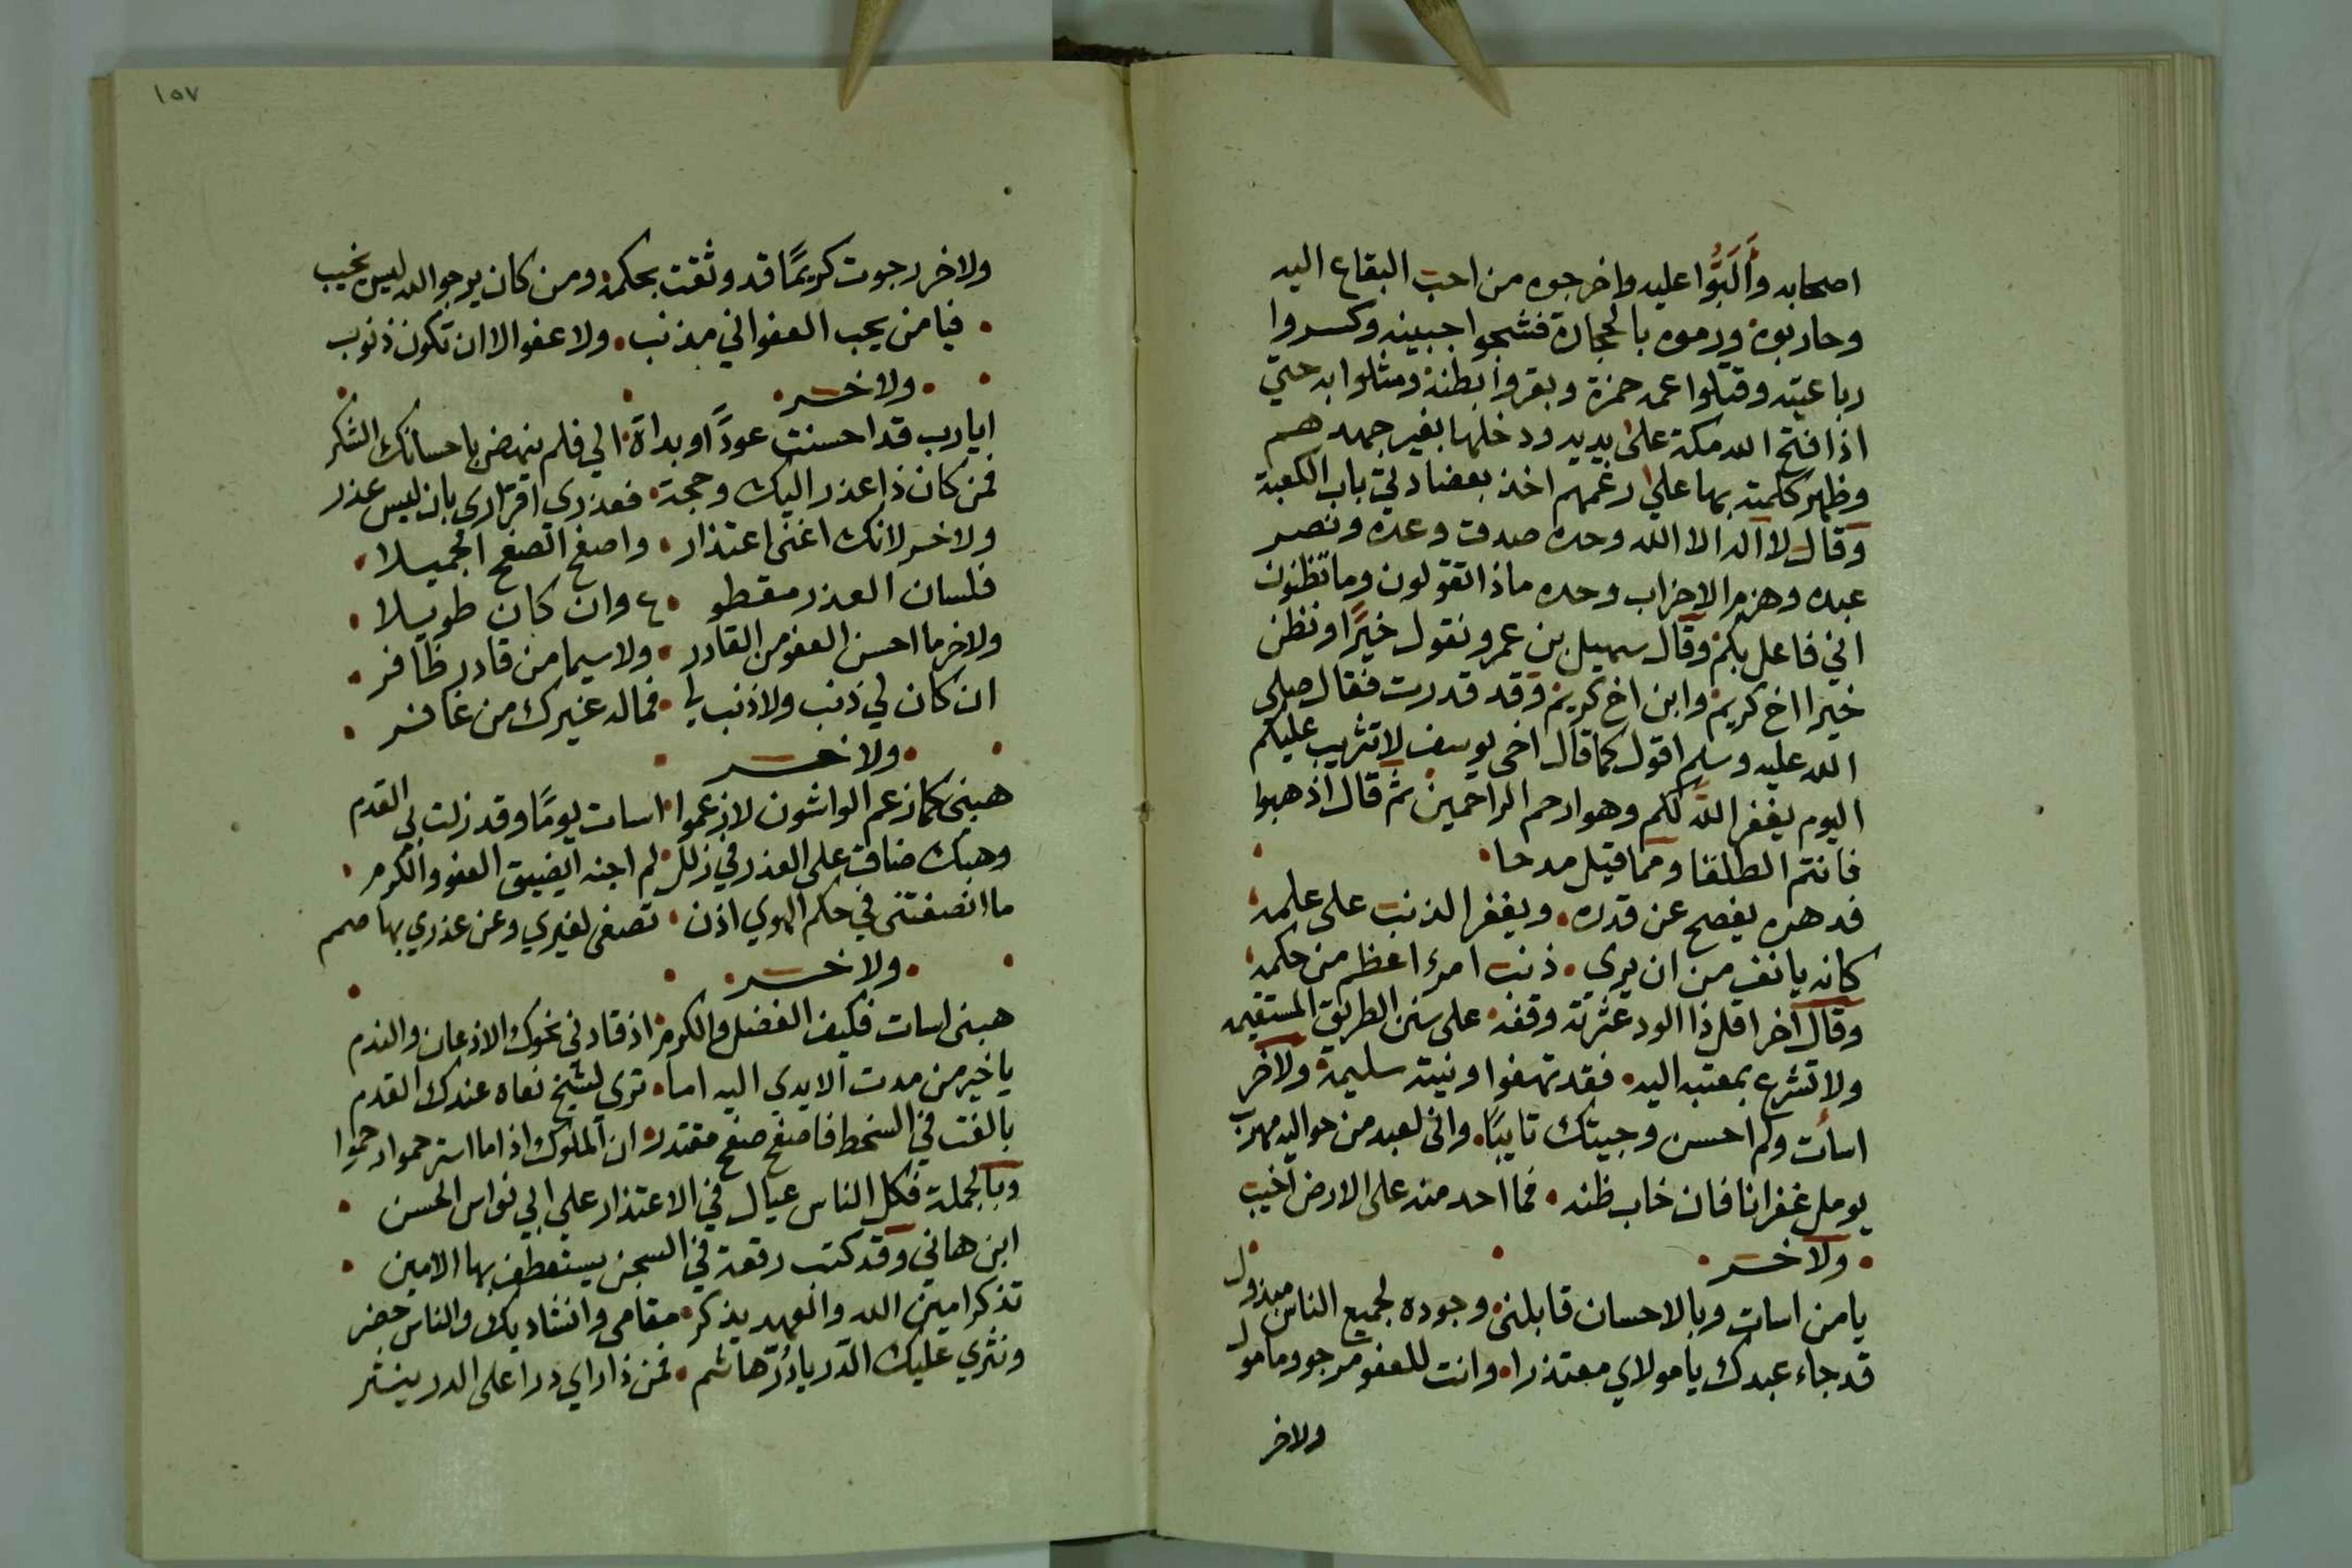 اصحابه وأَلَبُّوا عليه واخرجوه من احب البقاع اليه
وحاربوه ورموه بالحجارة فشجوا جبينه وكسروا
رباعيته وقتلوا عمه حمزة وبقروا بطنه ومثلوا به حتي
اذا فتح الله مكة على يديه ودخلها بغير جهدهم
وظهر كلمته بها على رغمهم اخذ بعضادتي باب الكعبة
وقال لا اله الا الله وحده صدق وعده ونصر
عبده وهزم الاحزاب وحده ماذا تقولون وما تظنون
اني فاعل بكم وقال سهيل بن عمرو نقول خيرًا ونظن
خيرا اخ كريم وابن اخ كريم وقد قدرت فقال صلى
الله عليه وسلم اقول كما قال اخى يوسف لا تثريب عليكم
اليوم يغفر الله لكم وهو ارحم الراحمين ثم قال اذهبوا
فانتم الطلقا ومما قيل مدحا
فدهره يصفح عن قدره ويغفر الذنب على علمه
كانه يانف من ان يرى ذنب امرء اعظم من حكمه
وقال اخر اقل ذا الود عثرته وقفه على سنن الطريق المستقيمه
ولا تشرع بمعتبه اليه فقد تهفوا ونيته سليمة ولاخر
اسأت ولم احسن وجيتك تايبًا وانى لعبد من مواليه مهرب
يومل غفرانا فان خاب ظنه فما احد منه على الارض اخيب
ولاخر
يا من اسات وبالاحسان قابلني وجوده لجميع الناس مبذول
قد جاء عبدك يا مولاي معتذرا وانت للعفو مرجو ومامول
ولاخر
١٥٧
ولاخر رجوت كريمًا قد وثقت بحكمه ومن كان يرجو الله ليس يخيب
فيا من يحب العفو اني مذنب ولا عفو الا ان تكون ذنوب
ولاخر
ايا رب قد احسنت عودًا وبداة الي فلم ينهض باحسانك الشكر
فمن كان ذا عذر اليك وحجة فعذري اقراري بان ليس عذر
ولاخر لانك اغنى اعتذار واصفح الصفح الجميلا
فلسان العذر مقطو ع وان كان طويلا
ولاخر ما احسن العفو من القادر ولا سيما من قادر ظافر
ان كان لي ذنب ولا ذنب لي فما له غيرك من غافر
ولاخر
هبنى كما زعم الواشون لا زعموا اسات يومًا وقد زلت بي القدم
وهبك ضاقت على العذر في زلل لم اجنه ايضيق العفو والكرم
ما انصفتنى في حكم الهوي اذن تصغى لغيري وعن عذري بها صمم
ولاخر
هبنى اسات فكيف الفضل والكرم اذ قادنى نحوك الاذعان والندم
يا خير من مدت الايدى اليه اما ترى لشيخ نعاه عندك القدم
بالغت في السخط فاصفح صفح مقتدر ان الملوك اذا ما استرحموا رحموا
وبالجملة فكل الناس عيال في الاعتذار على ابي نواس الحسن
ابن هاني وقد كتب رقعة في السجن يستعطف بها الامين
تذكر امين الله والعهد يذكر مقامى وانشاديك والناس حضر
ونثري عليك الدر يا دُرّ هاشم فمن ذا راي درا على الدر ينثر